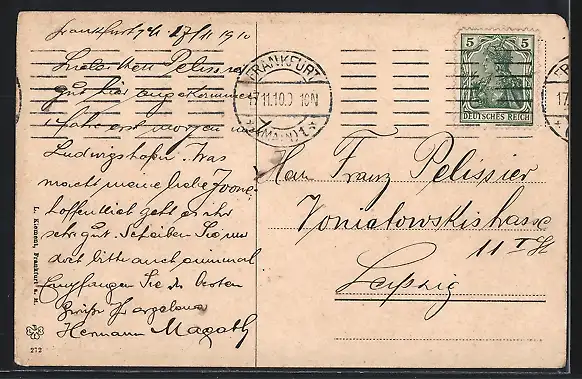 Frankfurt a/M 17/11 1910
Lieber Herr Pelissier
gut hier angekommen
fahre erst morgen nach
Ludwigshafen. Was
macht meine liebe
hoffentlich geht es ihr
sehr gut. Schreiben Sie mir
dort bitte auch einmal
Empfangen Sie die besten
Grüße
Hermann Magath
FRANKFURT
17.11.10. 10N
(MAIN) 1.
5 5
DEUTSCHES REICH
Herrn Franz Pelissier
Poniatowskistrasse
11 I H
Leipzig
L. Klement, Frankfurt a. M.
272